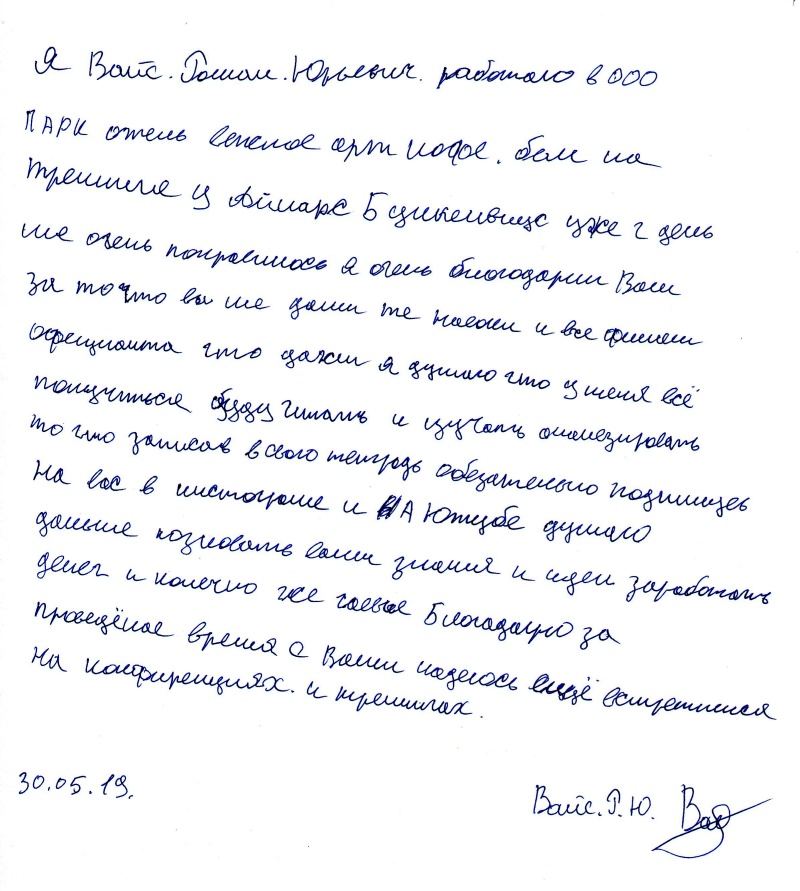 Я Вайс. Роман. Юрьевич. работаю в ООО
ПАРК отель арт кафе. был на
тренинге у Аймарс уже 2 день
мне очень понравилось я очень благодарин Вам
За то что вы мне дали те навоки и все фишки
официанта что дали я думаю что у меня всё
получиться буду читать и изучать анализировать
то что записал в свою тетрадь обезательно подпишусь
На вас в инстограме и НА Ютубе думаю
дальше познавать ваши знания и идеи заработать
денег и конечно же чаевые Благодарю за
проведёное время с Вами надеюсь ещё встретимся
На конфиренциях. и тренингах.
30.05.19.
Вайс. Р. Ю.